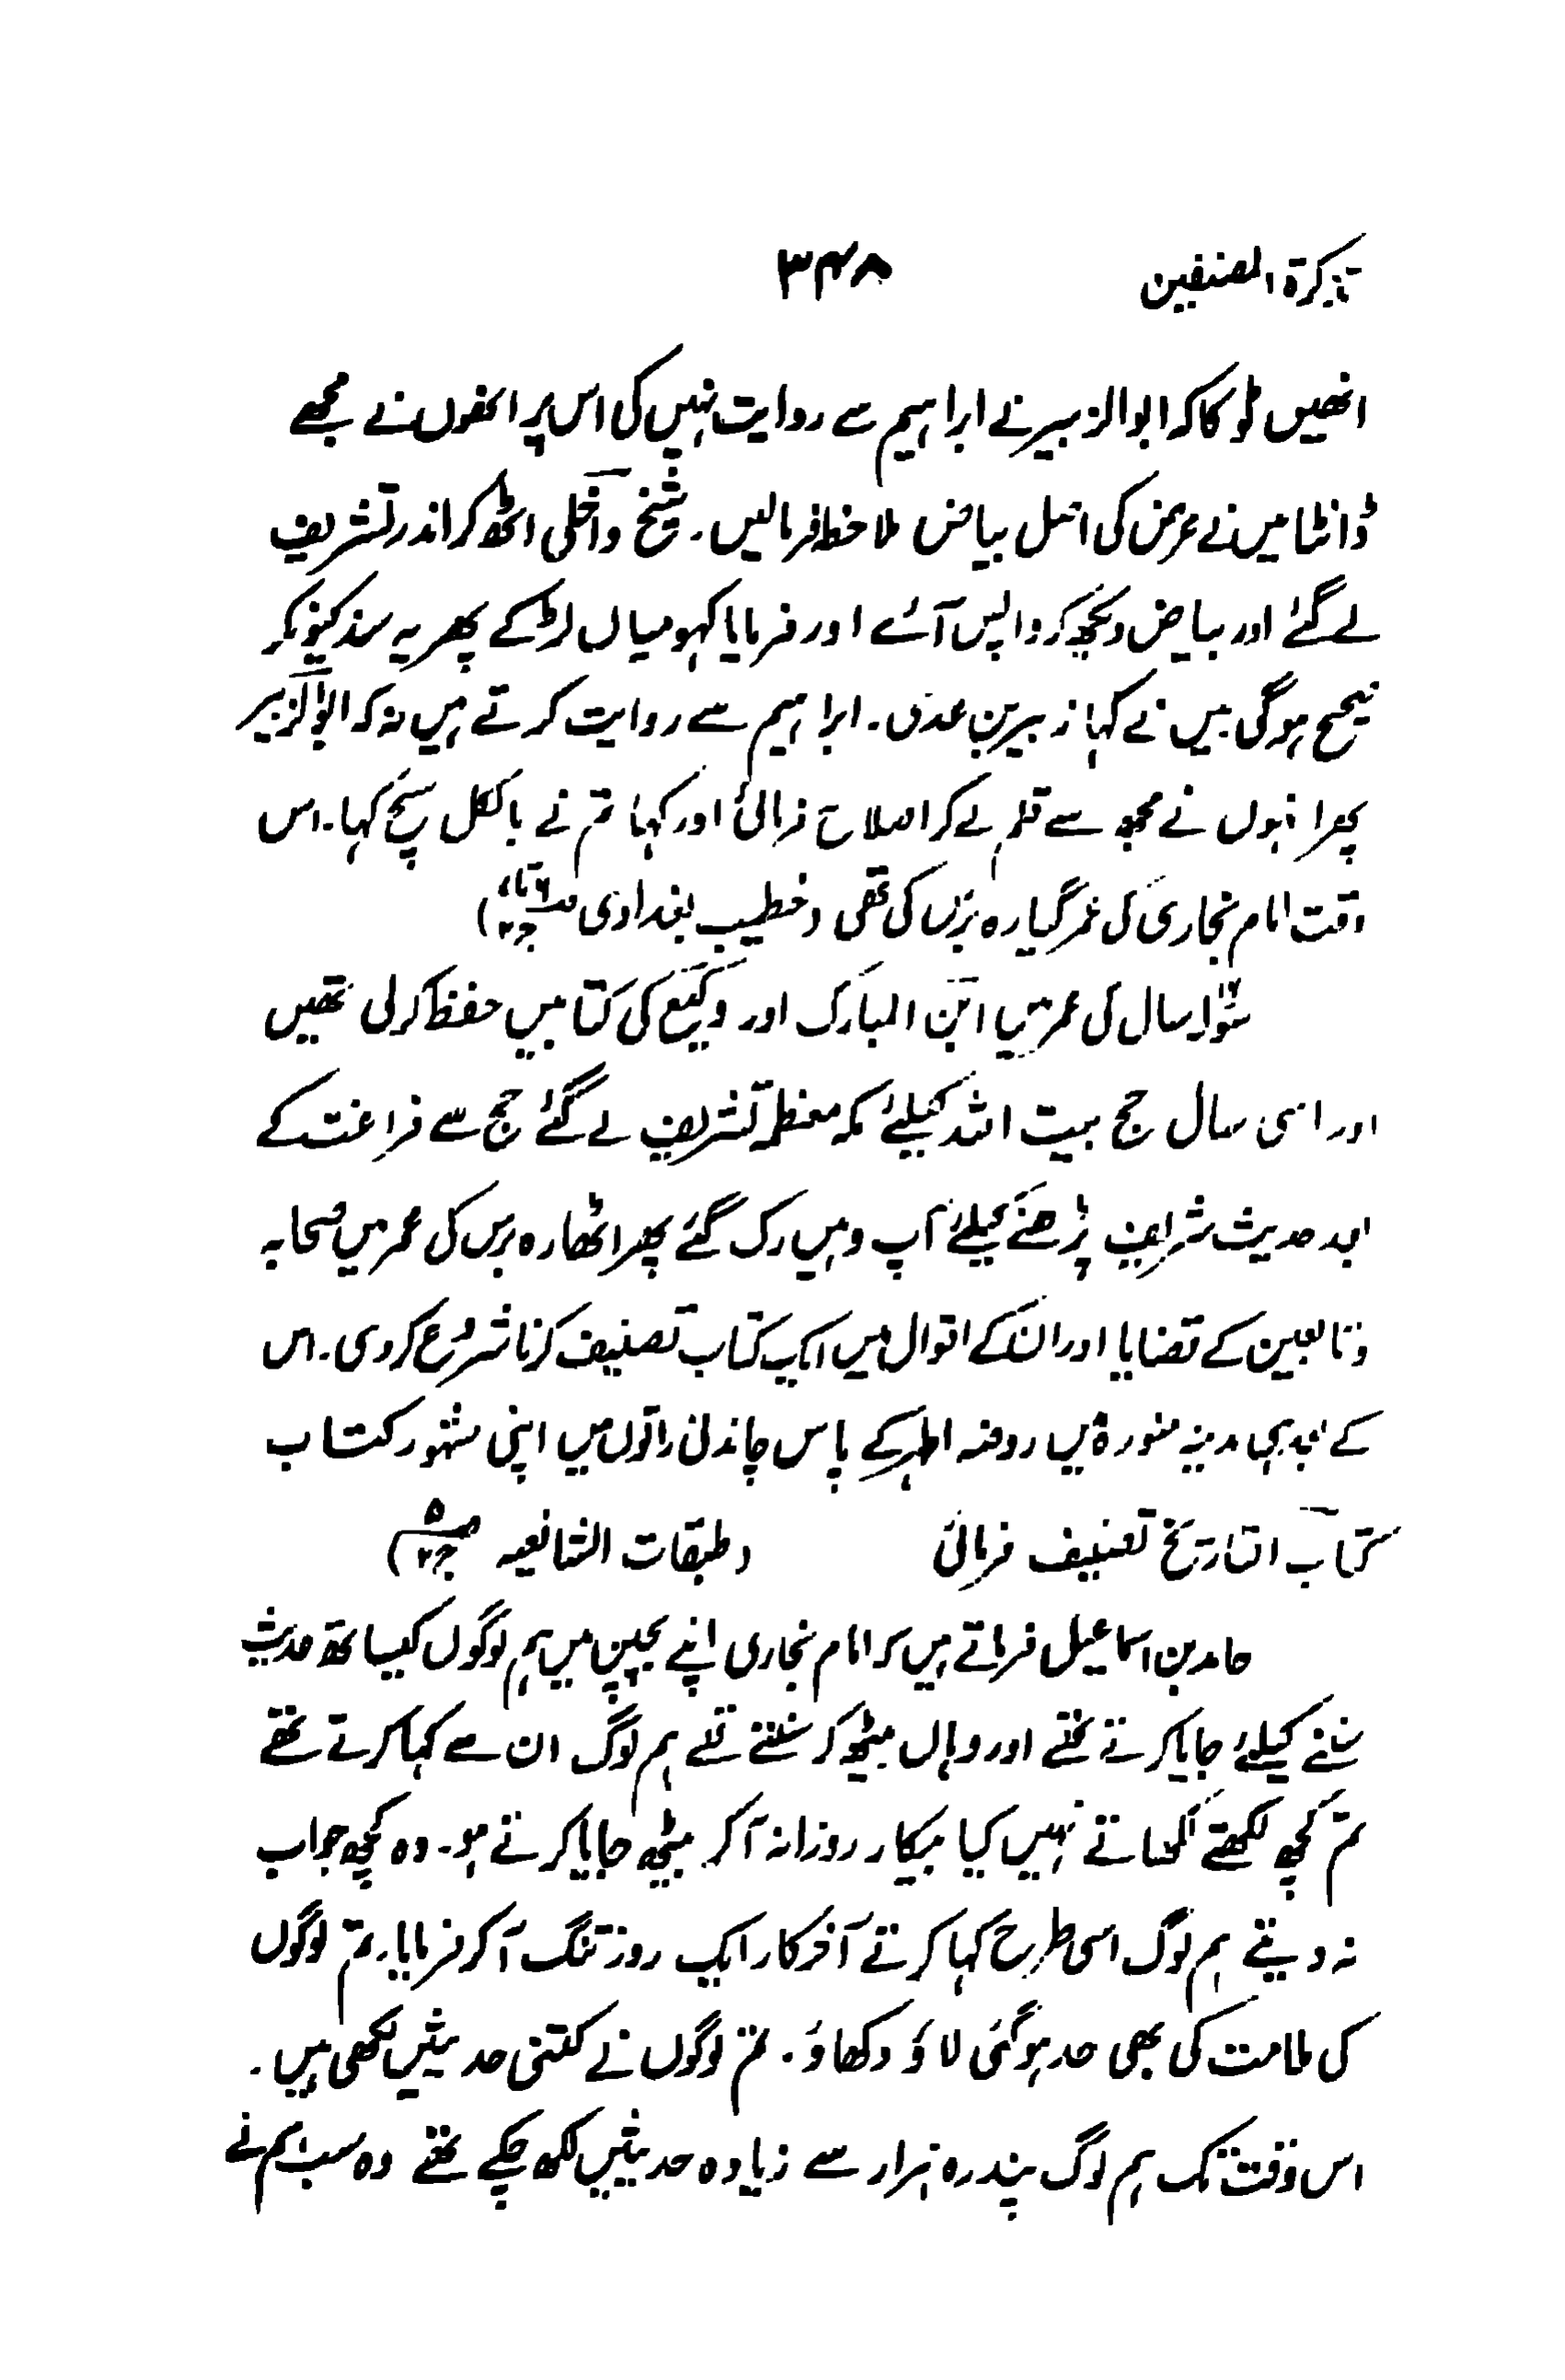 تذکرۃ المصنفین ۳۴۸
انھیں ٹوکا کہ ابوالزبیر نے ابراہیم سے روایت نہیں کی اس پر انھوں نے مجھے
ڈانٹا میں نے عرض کی اصل بیاض ملاحظہ فرمالیں۔ شیخ داخلی اٹھ کر اندر تشریف
لے گئے اور بیاض دیکھ کر واپس آئے اور فرمایا کہو میاں لڑکے پھر یہ سند کیونکر
صحیح ہوگی میں نے کہا زبیر بن عدی۔ ابراہیم سے روایت کرتے ہیں نہ کہ ابوالزبیر
پھر انہوں نے مجھ سے قلم لے کر اصلاح فرمالی اور کہا تم نے بالکل سچ کہا۔ اس
وقت امام بخاری کی عمر گیارہ برس کی تھی (خطیب بغدادی
سولہ سال کی عمر میں ابن المبارک اور وکیع کی کتابیں حفظ کر لی تھیں
اور اسی سال حج بیت اللہ کیلئے مکہ معظمہ تشریف لے گئے حج سے فراغت کے
بعد حدیث شریف پڑھنے کیلئے آپ وہیں رک گئے پھر اٹھارہ برس کی عمر میں صحابہ
و تابعین کے قضایا اور ان کے اقوال میں ایک کتاب تصنیف کرنا شروع کر دی۔ اس
کے بعد ہی مدینہ منورہ میں روضہ اطہر کے پاس چاندنی راتوں میں اپنی مشہور کتاب
کتاب التاریخ تصنیف فرمائی (طبقات الشافعیہ ص۵ ج۲)
حامد بن اسماعیل فرماتے ہیں کہ امام بخاری اپنے بچپن میں ہم لوگوں کیساتھ حدیث
سننے کیلئے جایا کرتے تھے اور وہاں بیٹھ کر سنتے تھے ہم لوگ ان سے کہا کرتے تھے
تم کچھ لکھتے لکھاتے نہیں کیا بیکار روزانہ آکر بیٹھ جایا کرتے ہو۔ وہ کچھ جواب
نہ دیتے ہم لوگ اسی طرح کہا کرتے آخر کار ایک روز تنگ آکر فرمایا۔ تم لوگوں
کی ملامت کی بھی حد ہوگئی لاؤ دکھاؤ۔ تم لوگوں نے کتنی حدیثیں لکھی ہیں۔
اس وقت تک ہم لوگ پندرہ ہزار سے زیادہ حدیثیں لکھ چکے تھے وہ سب ہم نے